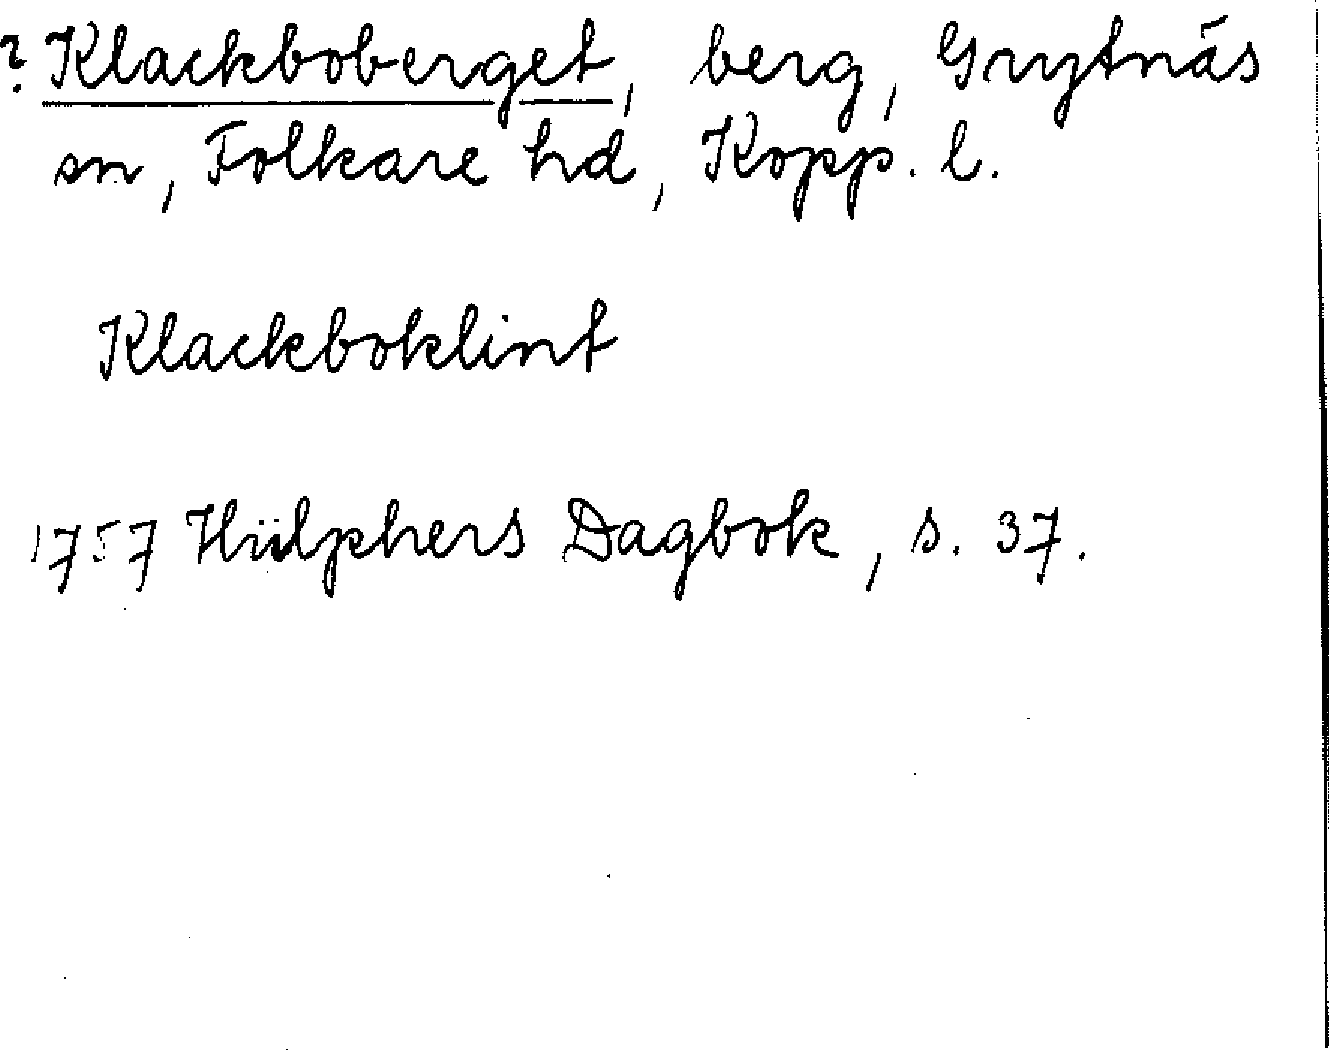 ? Klackboberget, berg, Grytnäs
sn, Folkare hd, Kopp. l.
Klackboklint
1757 Hülphers Dagbok, s. 37.